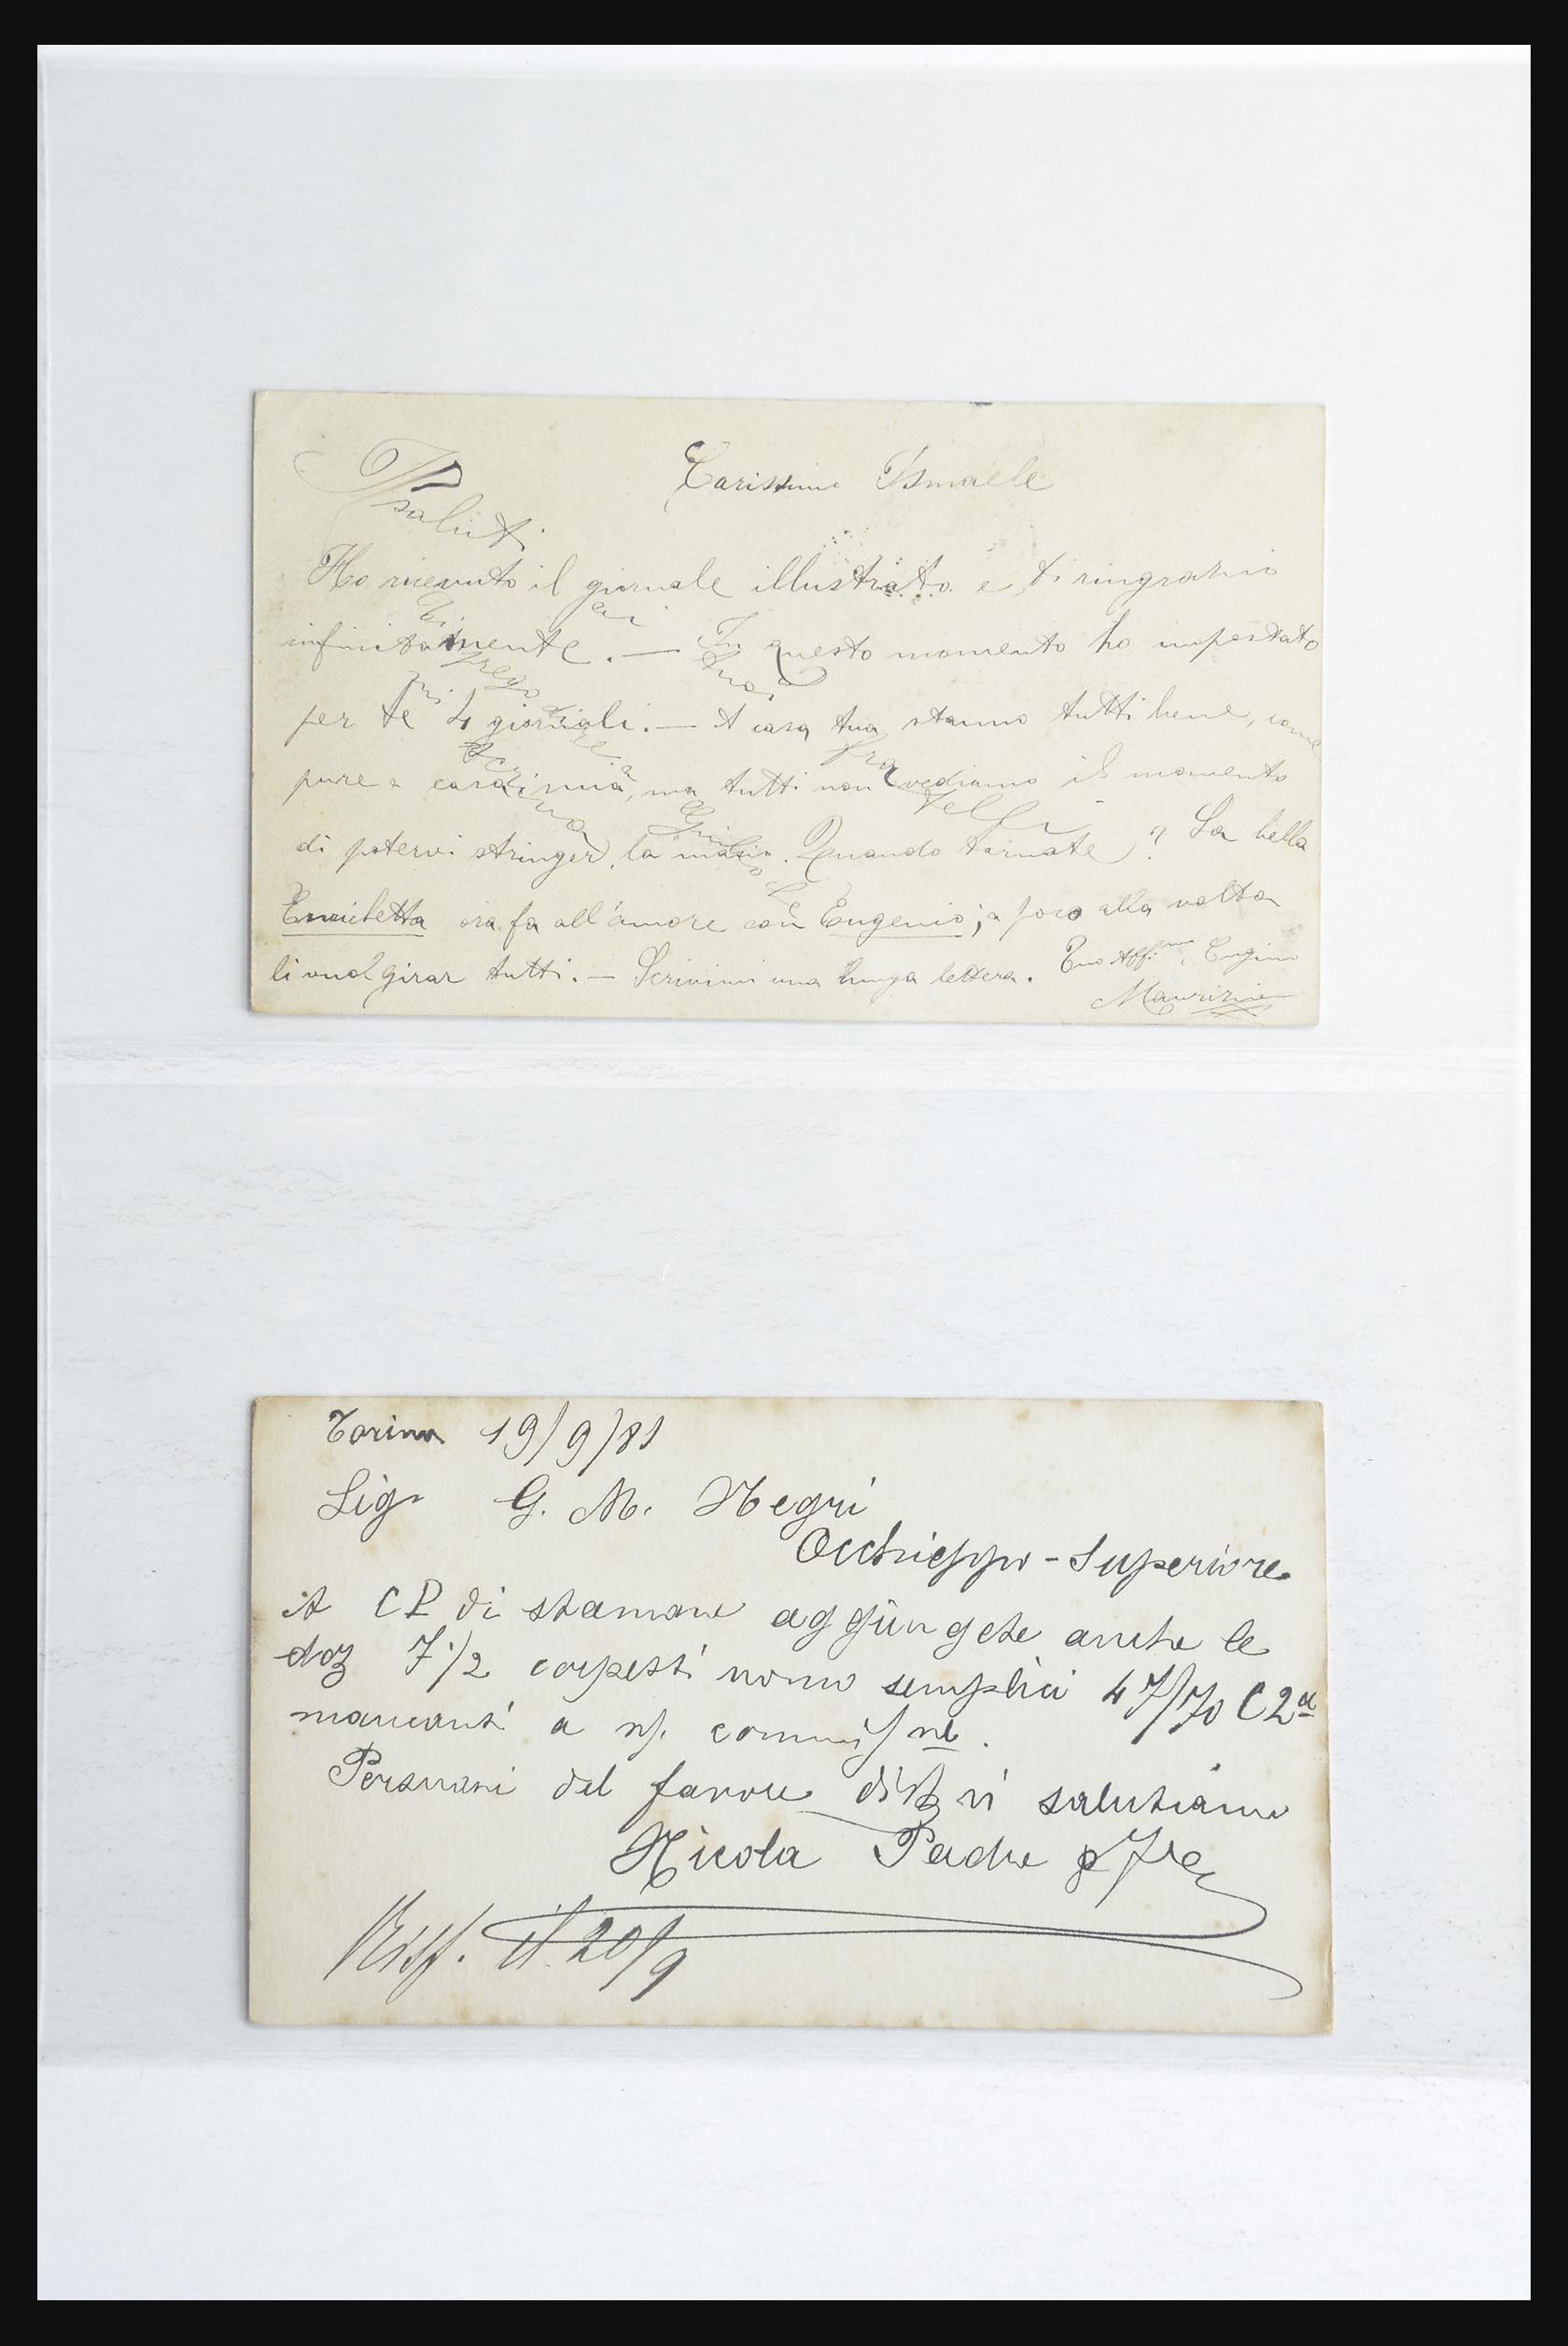 Carissimo Ismaele
Saluti
Ho ricevuto il giornale illustrato e ti ringrazio
infinitamente. — In questo momento ho impostato
per te 4 giornali. — A casa tua stanno tutti bene, come
pure a casa mia, ma tutti non vediamo il momento
di potervi stringer la mano. Quando tornate? La bella
Enrichetta ora fa all'amore con Eugenio; a poco alla volta
li vuol girar tutti. — Scrivimi una lunga lettera. Tuo Aff.mo Cugino
Maurizio
Ti prego di
scrivermi
ai
tuoi
fratelli
Torino 19/9/81
Sigr G. M. Negri
Occhieppo-Superiore
A CP di stamane aggiungete anche le
doz 7 1/2 corpetti uomo semplici 47/70 C 2a
mancanti a
Persuasi del favore vi salutiamo
Nicola Padre
Risp. il 20/9